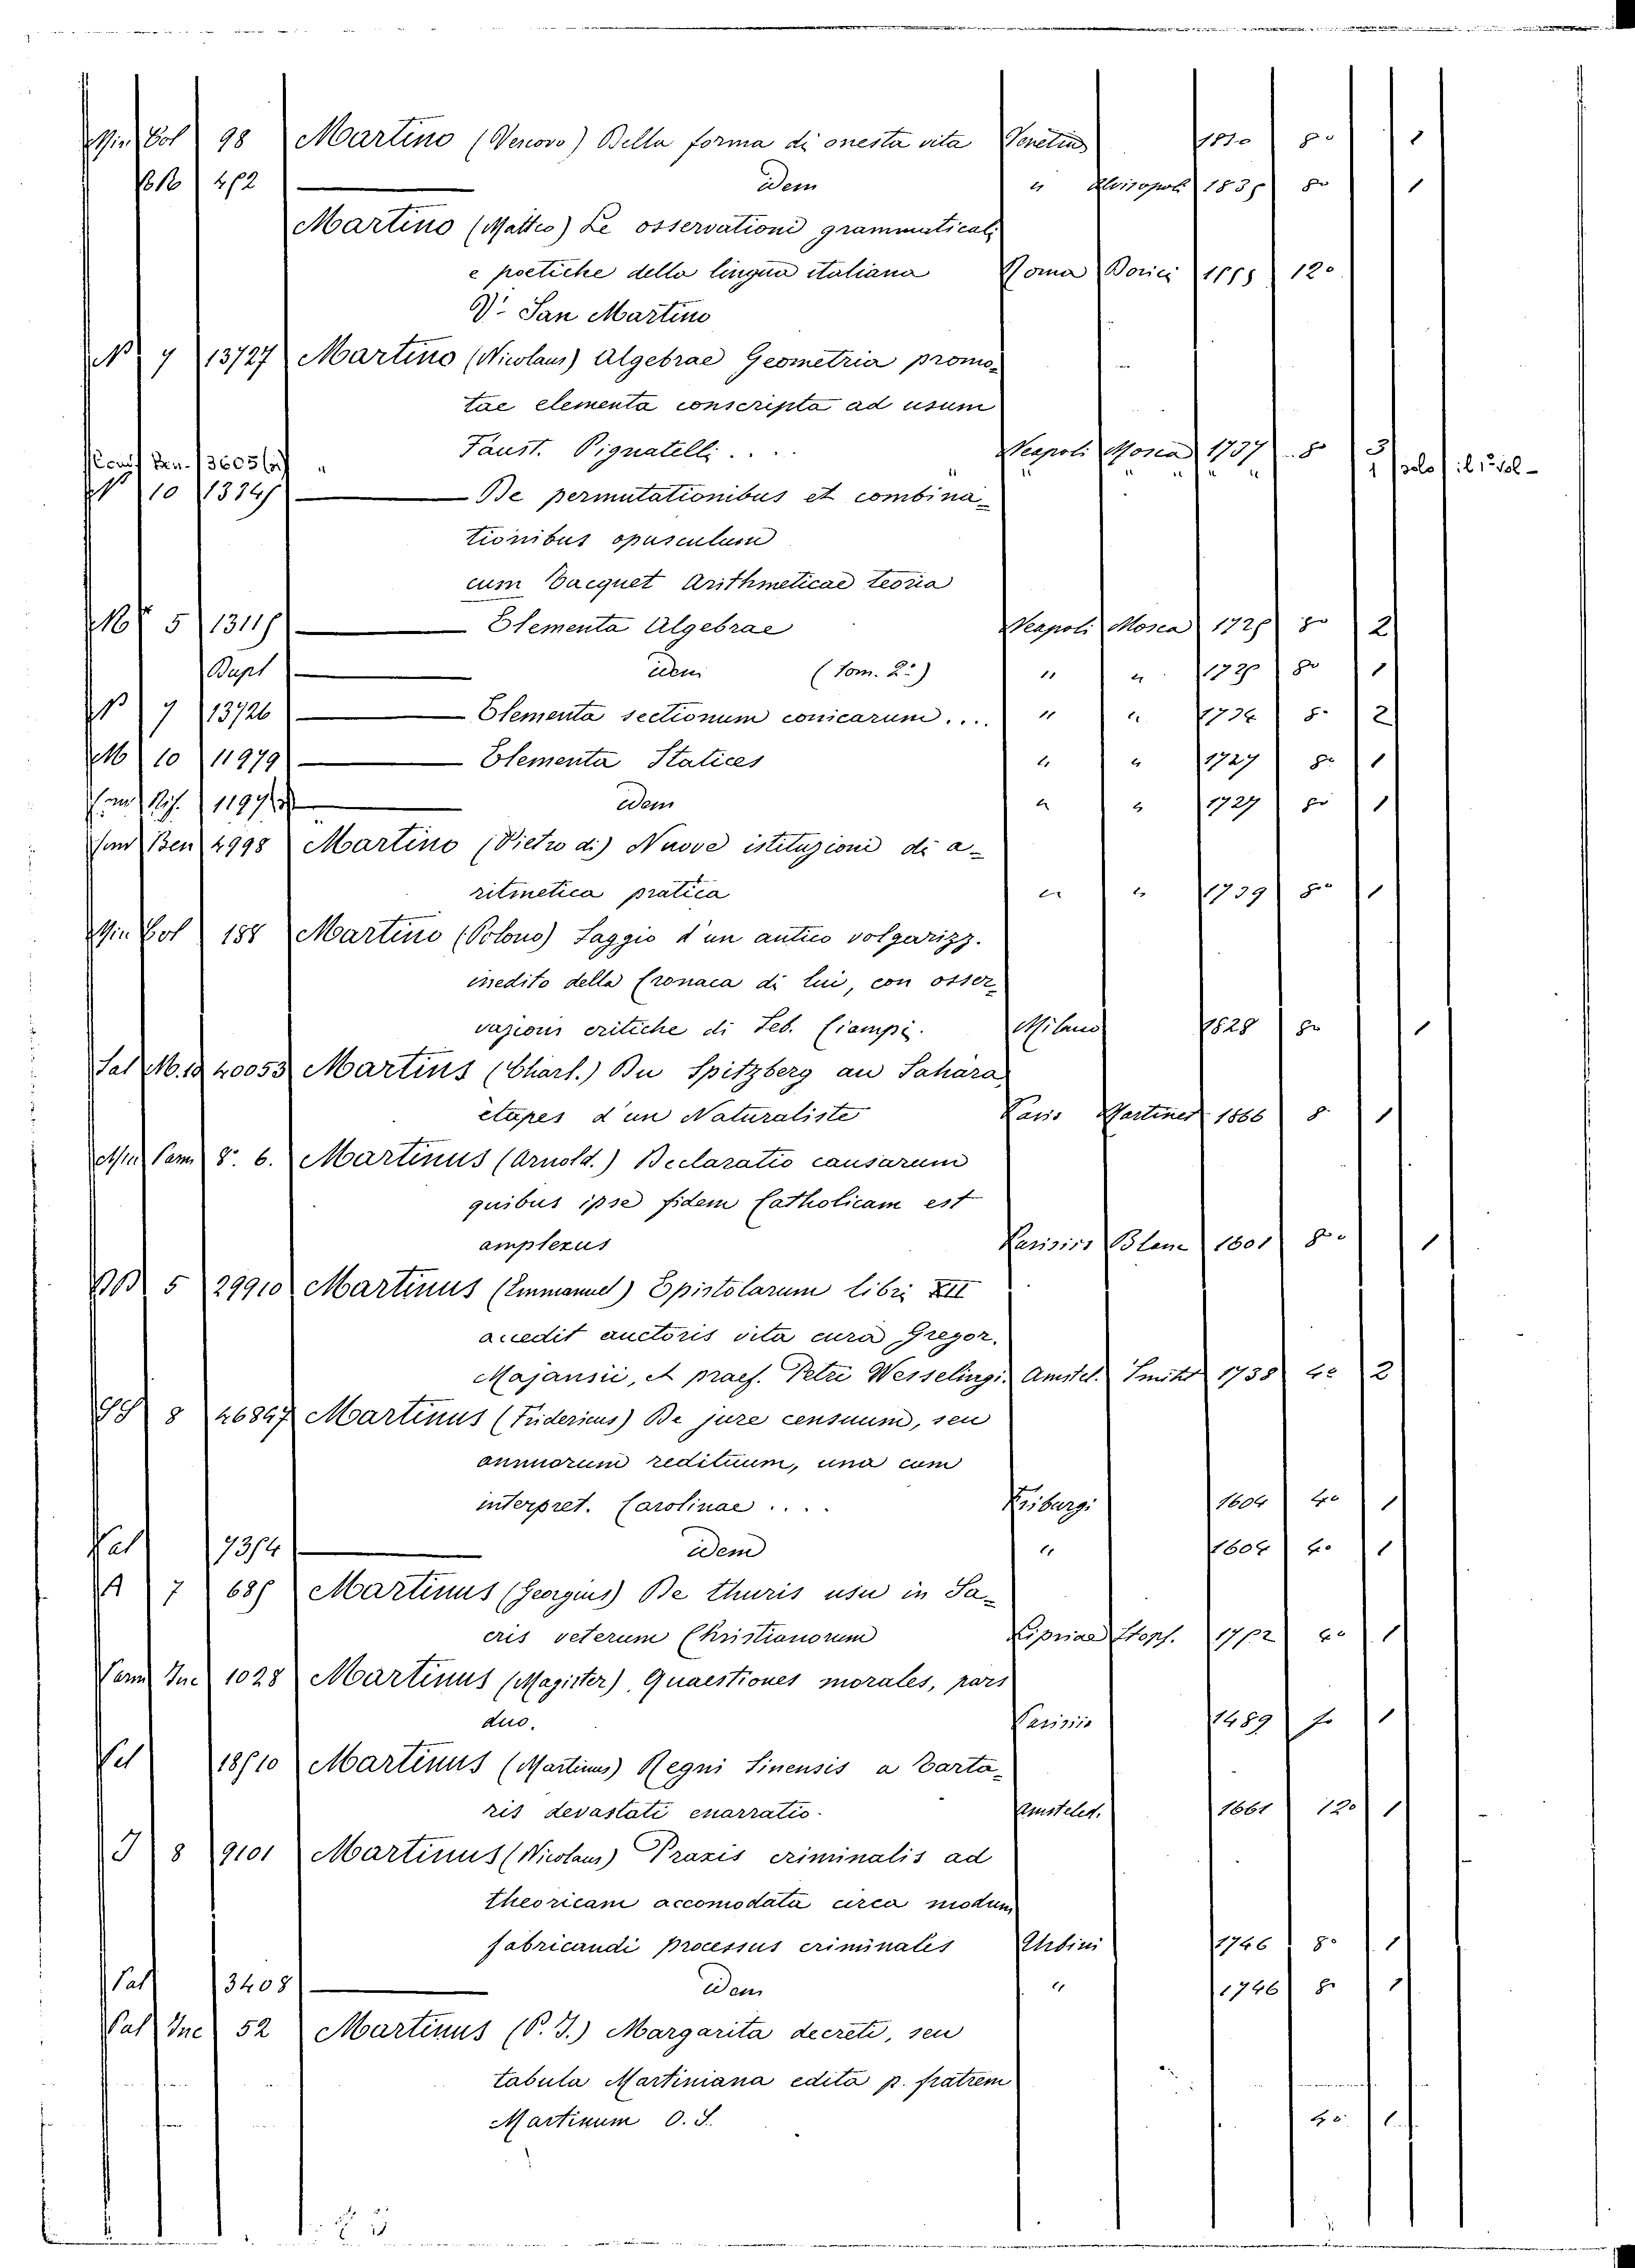 Min Col 98 Martino (Vescovo) Della forma di onesta vita Venetiis 1810 8º 1
idem " Alvisopoli 183 8º 1
Martino (Matteo) Le osservationi grammaticali
e poetiche della lingua italiana Roma Dorici 12º
Vº San Martino
N 7 13727 Martino (Nicolaus) Algebrae Geometria promo-
tae elementa conscripta ad usum
Faust. Pignatelli.... Neapoli Mosca 1737 8º 3
Ben. 13605 " " " " " 1 solo il 1º vol-
10 De permutationibus et combina-
tionibus opusculum
cum Tacquet Arithmeticae teoria
5 Elementa Algebrae Neapoli Mosca 172 8º 2
Dupl idem (Tom. 2º) " " 8º 1
7 13726 Elementa sectionum conicarum.... " " 1734 8º 2
M 10 11979 Elementa Statices " " 1727 8º 1
idem " " 1727 8º 1
Ben 4998 Martino (Pietro di) Nuove istituzioni di a-
ritmetica pratica " " 1739 8º 1
Min Col 188 Martino (Polono) Saggio d'un antico volgarizz.
inedito della Cronaca di lui, con osser-
vazioni critiche di Seb. Ciampi. Milano 1828 8º 1
Sal M.19 40053 Martins (Charl.) Du Spitzberg au Sahara,
étapes d'un Naturaliste Paris Martinet 1866 8º 1
8º 6. Martinus (Arnold.) Declaratio causarum
quibus ipse fidem Catholicam est
amplexus Parisiis Blanc 1601 8º 1
5 29910 Martinus (Emmanuel) Epistolarum libri XII
accedit auctoris vita cura Gregor.
Majansii, et praef. Petri Wesselingi. Amstel. Smith 1738 4º 2
8 46847 Martinus (Fridericus) De jure censuum, seu
annuorum redituum, una cum
interpret. Carolinae.... Friburgi 1604 4º 1
idem " 1604 4º 1
A 7 68 Martinus (Georgius) De thuris usu in Sa-
cris veterum Christianorum Lipsiae Stopf. 4º 1
Inc 1028 Martinus (Magister), Quaestiones morales, pars
duo. Parisiis 1489 fº 1
Martinus (Martinus) Regni Sinensis a Tarta-
ris devastati enarratio. Amstelod. 1661 12º 1
J 8 9101 Martinus (Nicolaus) Praxis criminalis ad
theoricam accomodata circa modum
fabricandi processus criminales Urbini 1746 8º 1
Pal 3408 idem " 1746 8º 1
Pal Inc 52 Martinus (P. J.) Margarita decreti, seu
tabula Martiniana edita p. fratrem
Martinum O. S. 4º 1